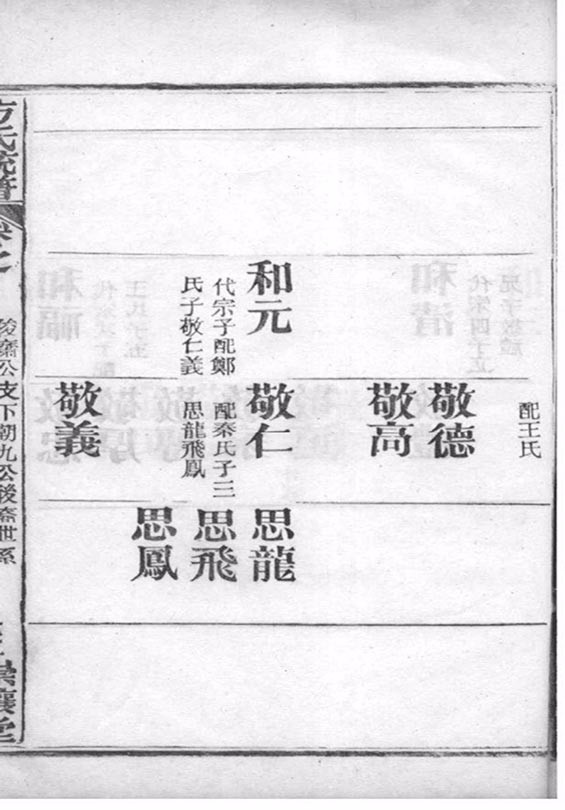 配王氏
敬德
敬高
和元
代宗子配鄭
氏子敬仁義
敬仁
配秦氏子三
思龍飛鳳
敬義
思龍
思飛
思鳳
方氏統譜
公支下朝九公後裔世系